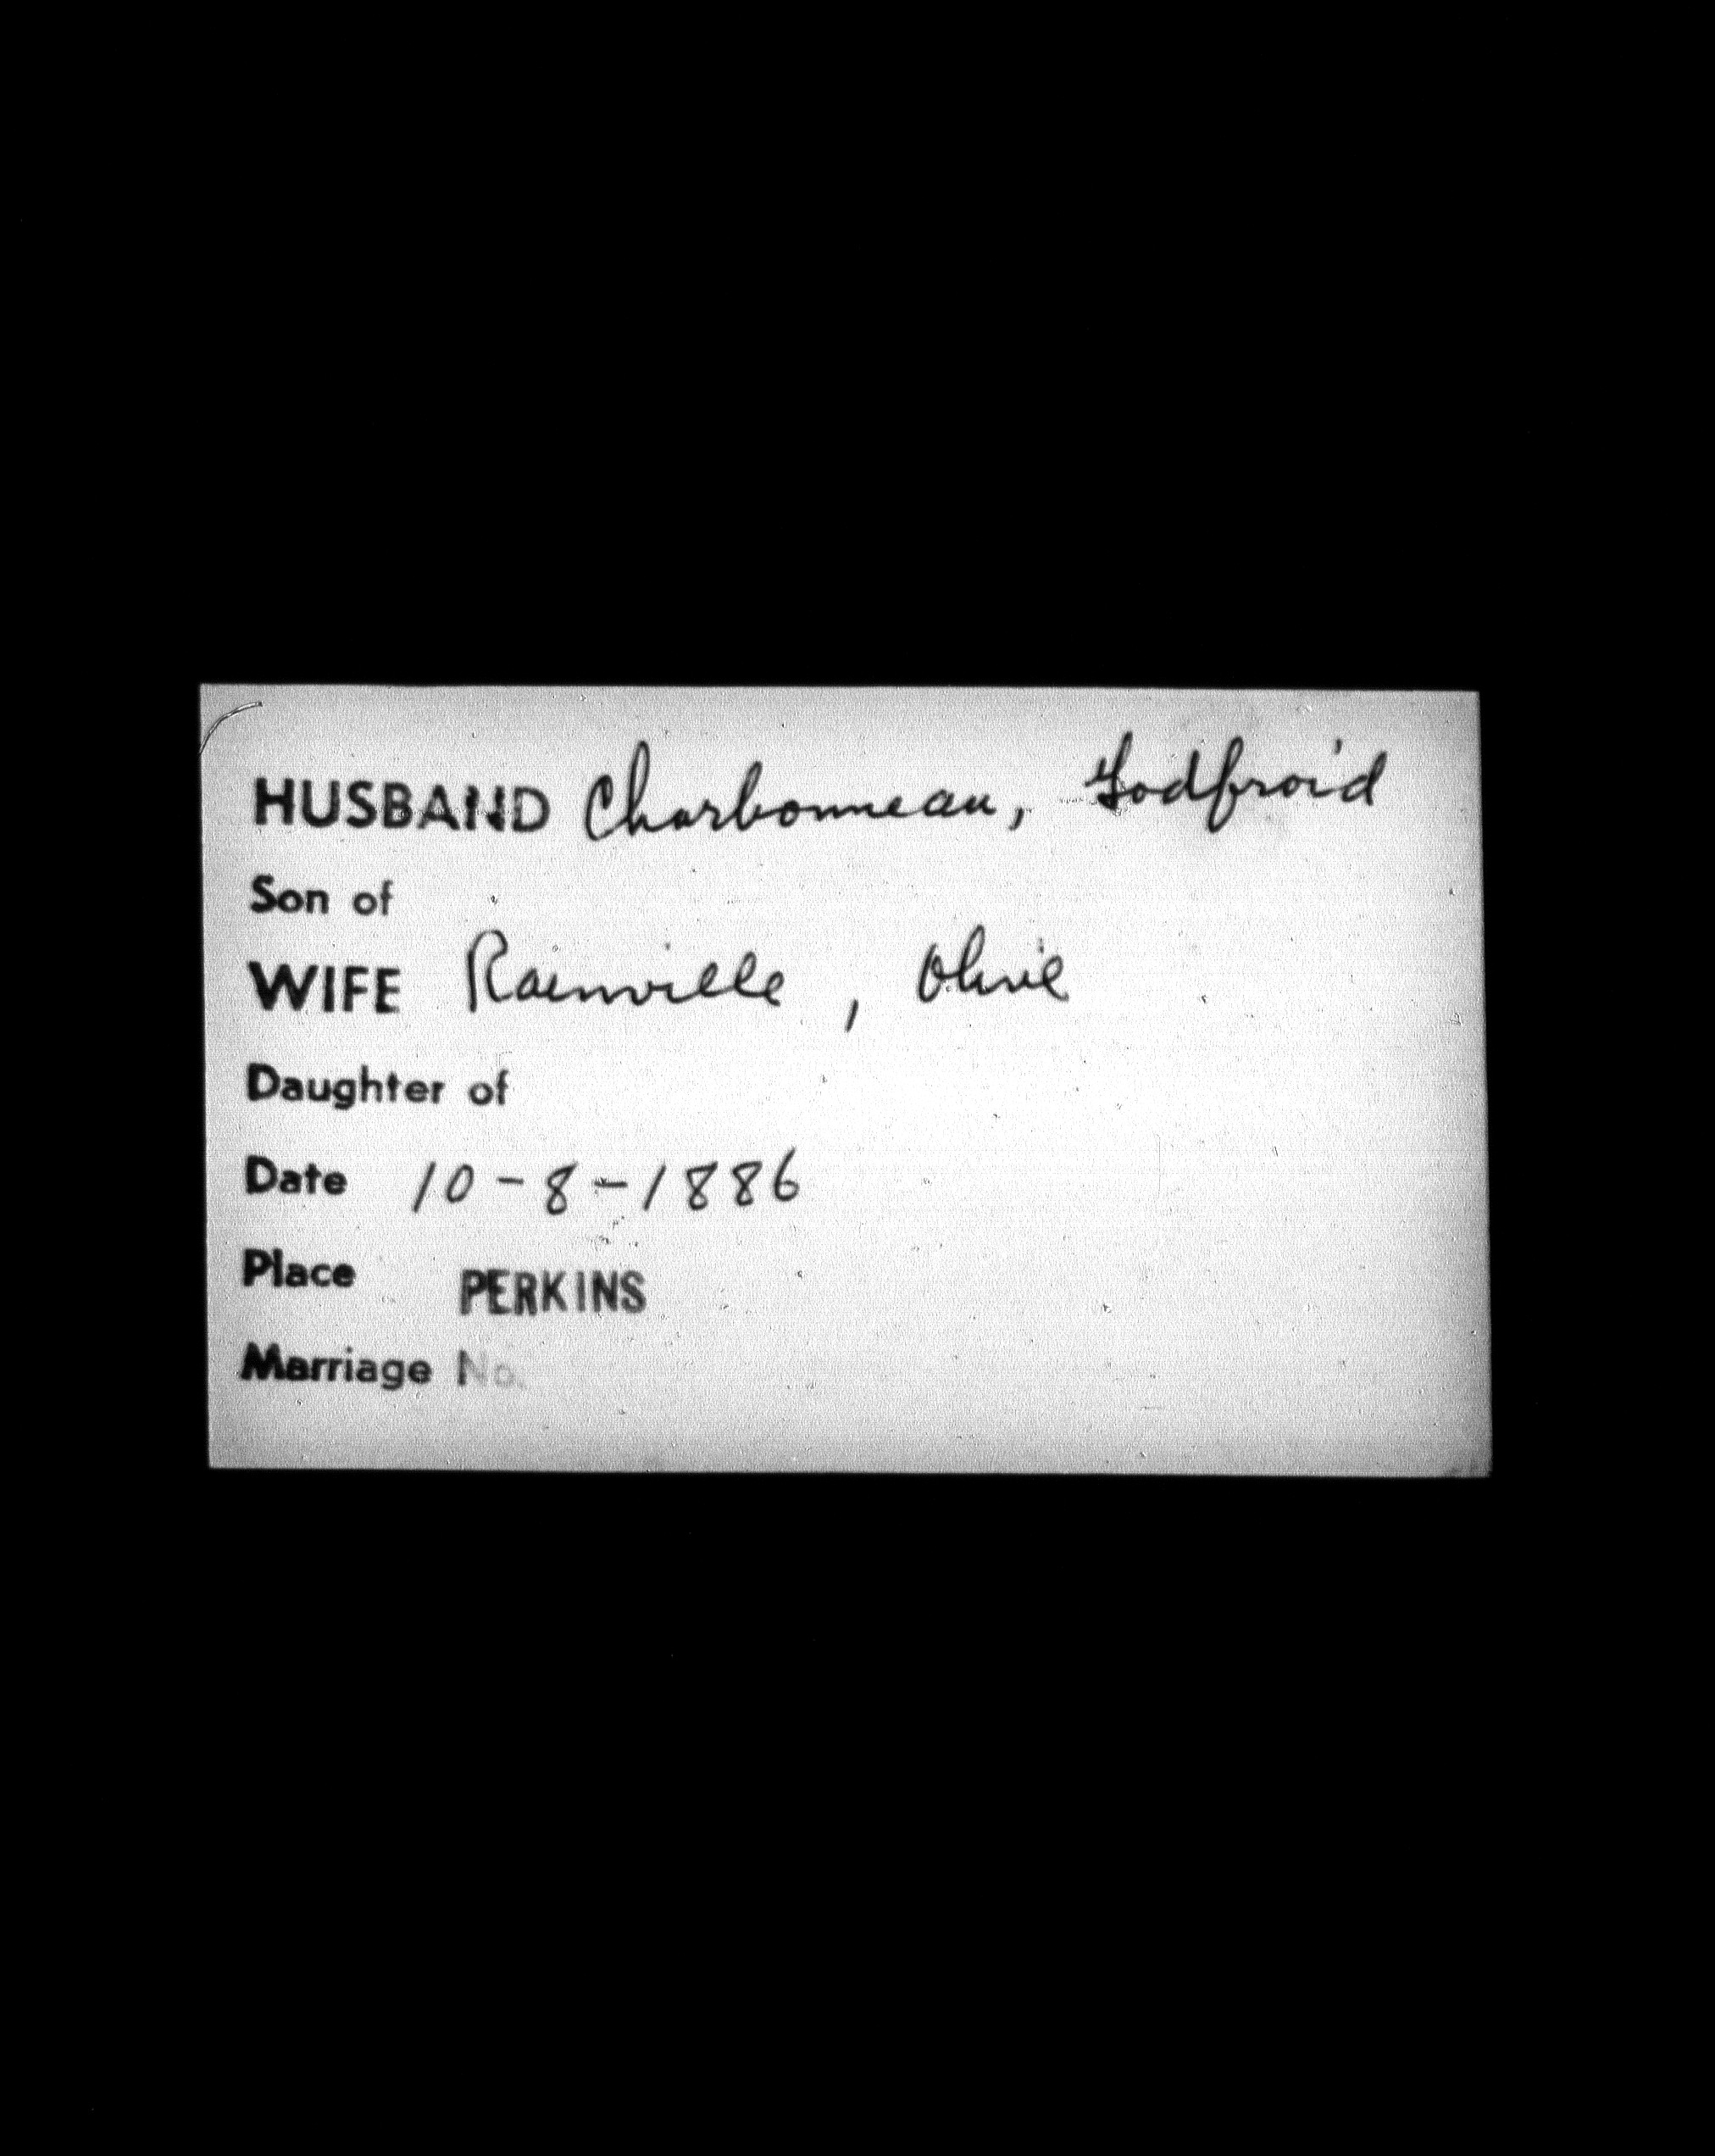 HUSBAND Charbonneau, Godfroid
Son of
WIFE Rainville, Olivie
Daughter of
Date 10-8-1886
Place PERKINS
Marriage No.